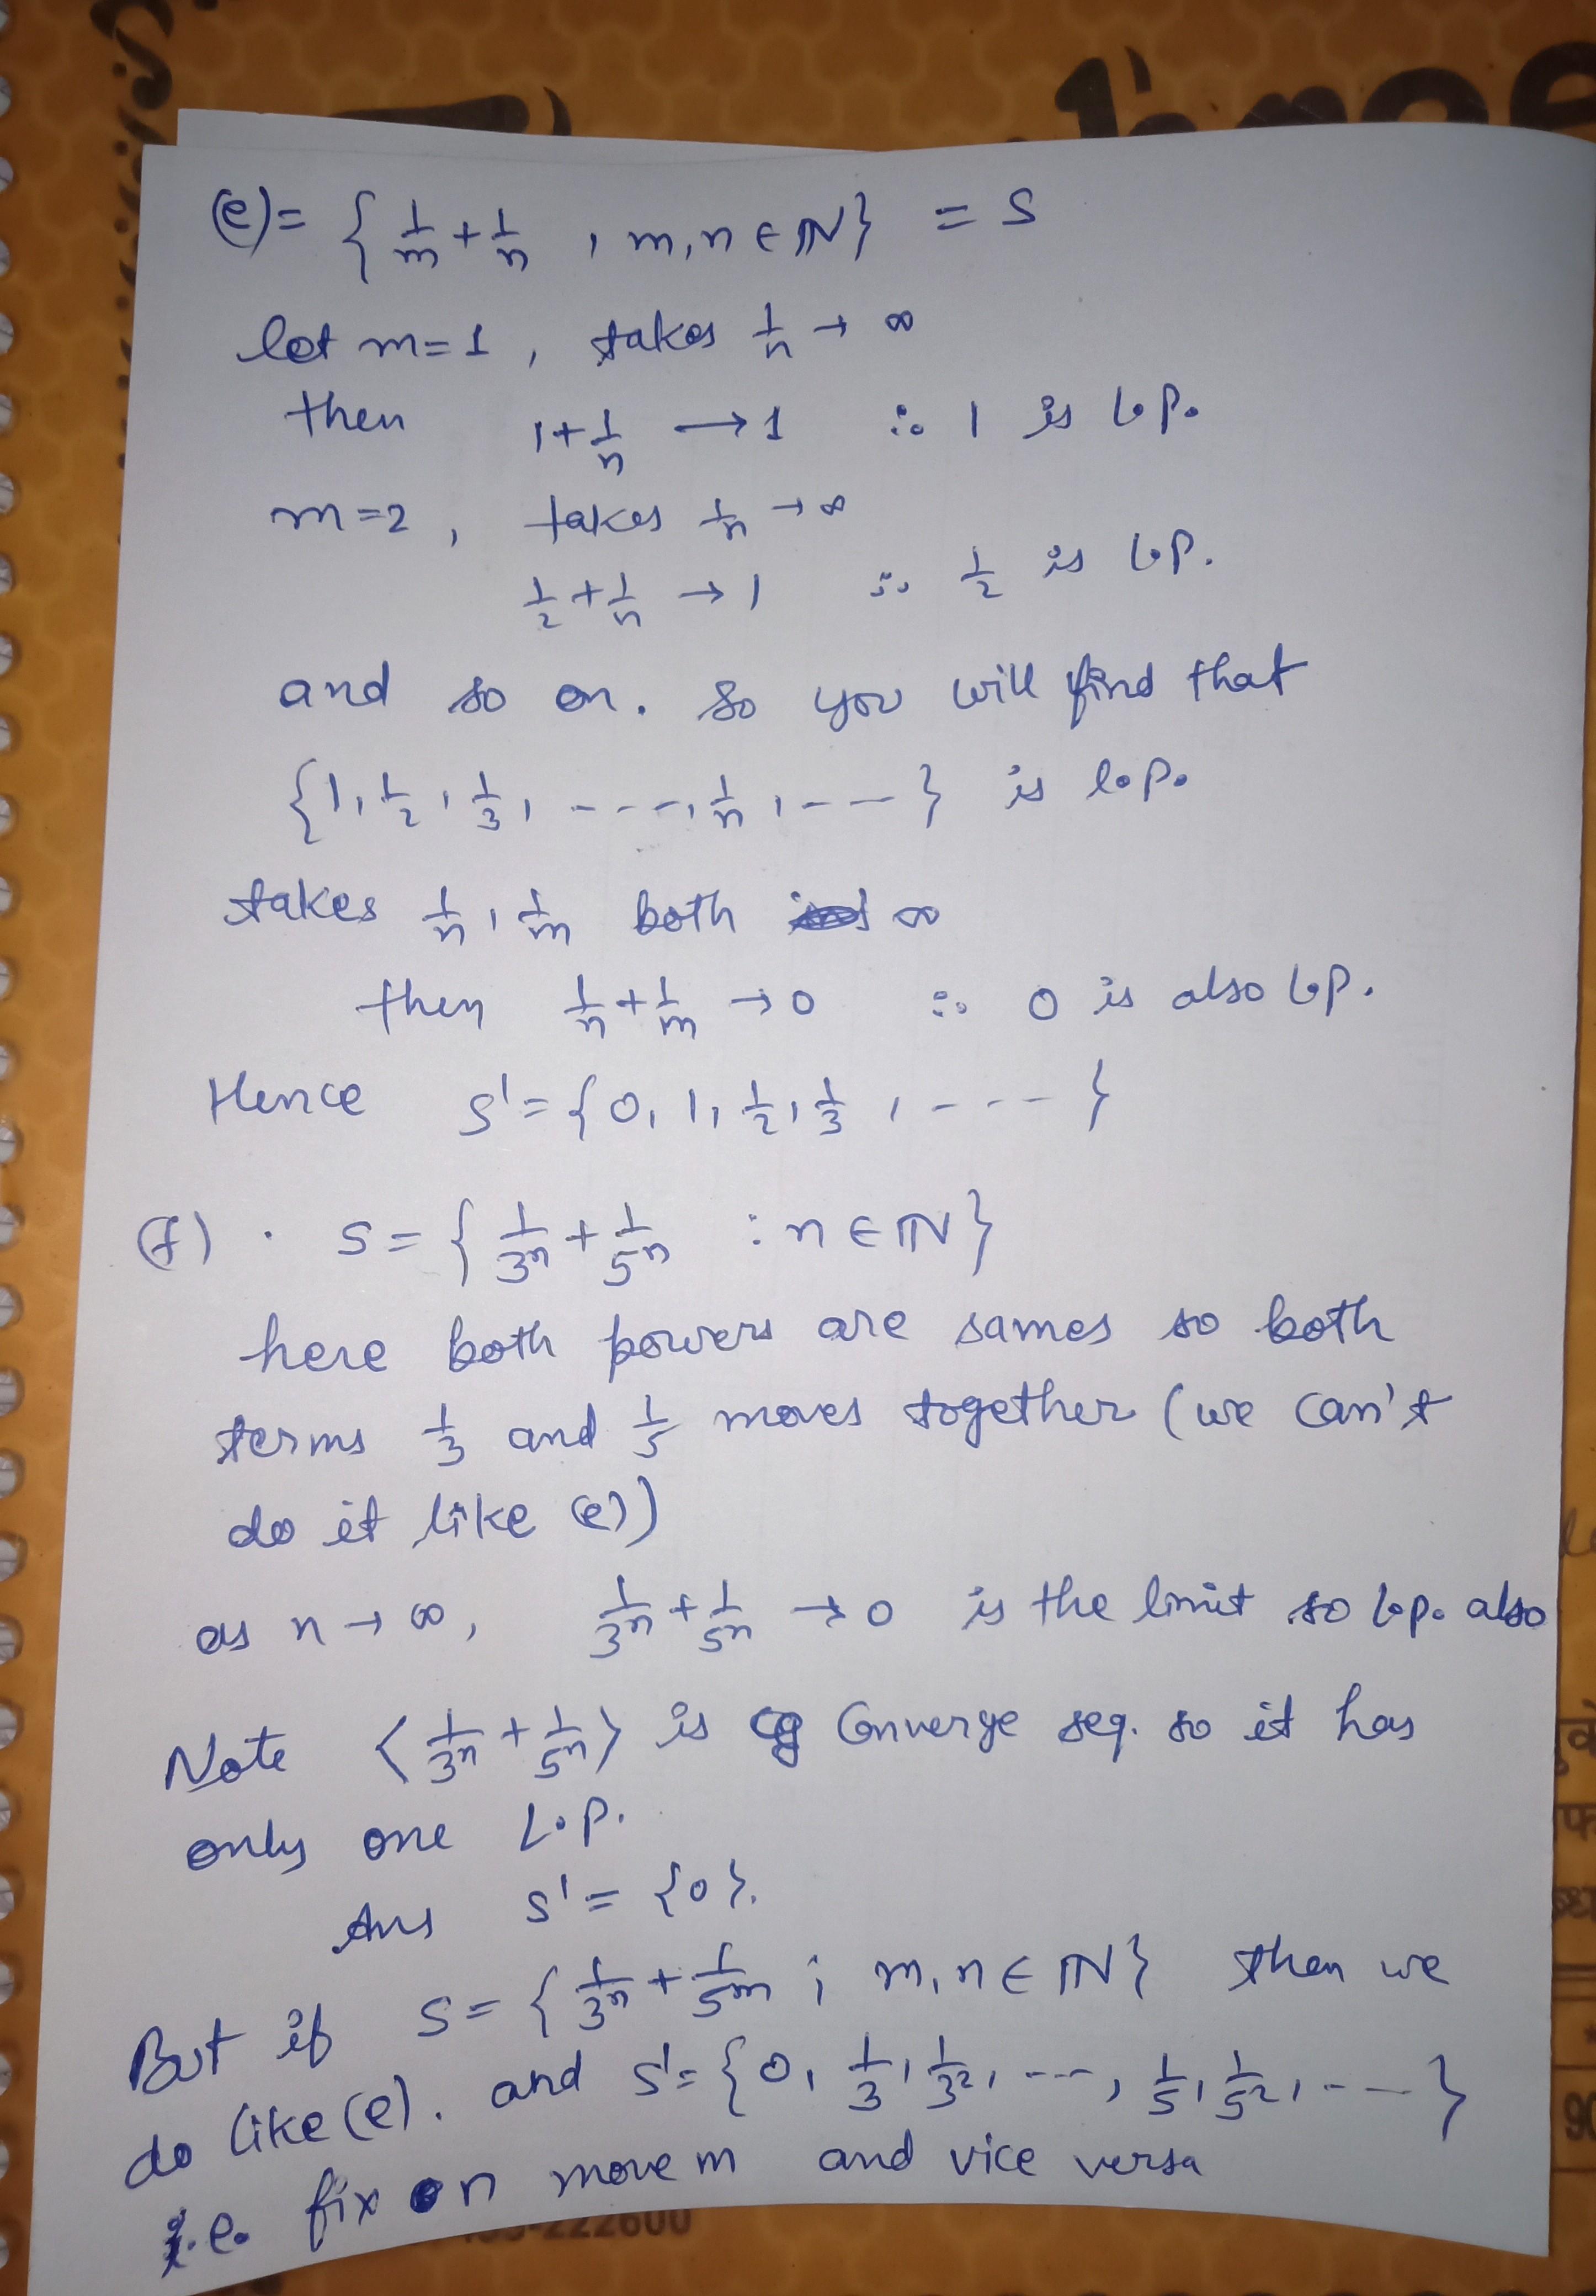 (e) = { 1/m + 1/n , m,n ∈ ℕ } = S
let m=1 , takes 1/n → ∞
then 1+1/n → 1 ∴ 1 is l.p.
m=2 , takes 1/n → ∞
1/2 + 1/n → 1 ∴ 1/2 is l.p.
and so on. so you will find that
{1, 1/2, 1/3, ----, 1/n, ---} is l.p.
takes 1/n, 1/m both ∞
then 1/n + 1/m → 0 ∴ 0 is also l.p.
Hence S' = {0, 1, 1/2, 1/3, ---- }
(f) . S = { 1/3ⁿ + 1/5ⁿ : n ∈ ℕ }
here both powers are sames so both
terms 1/3 and 1/5 moves together (we can't
do it like (e))
as n → ∞, 1/3ⁿ + 1/5ⁿ → 0 is the limit so l.p. also
Note < 1/3ⁿ + 1/5ⁿ > is Converge seq. so it has
only one L.P.
Ans S' = {0}.
But if S = { 1/3ⁿ + 1/5ᵐ ; m,n ∈ ℕ } then we
do like (e). and S' = {0, 1/3, 1/3², ---, 1/5, 1/5², --- }
i.e. fix n move m and vice versa
222600
90